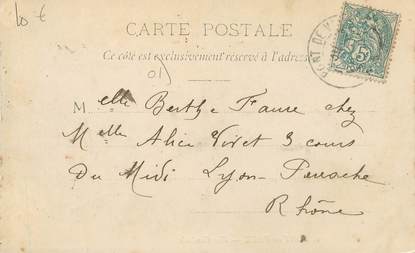 10 €
CARTE POSTALE
Ce côté est exclusivement réservé à l'adresse
01)
PONT DE
5
Melle Berthe Faure chez
Melle Alice Viret 3 cours
Du Midi Lyon-Perrache
Rhône